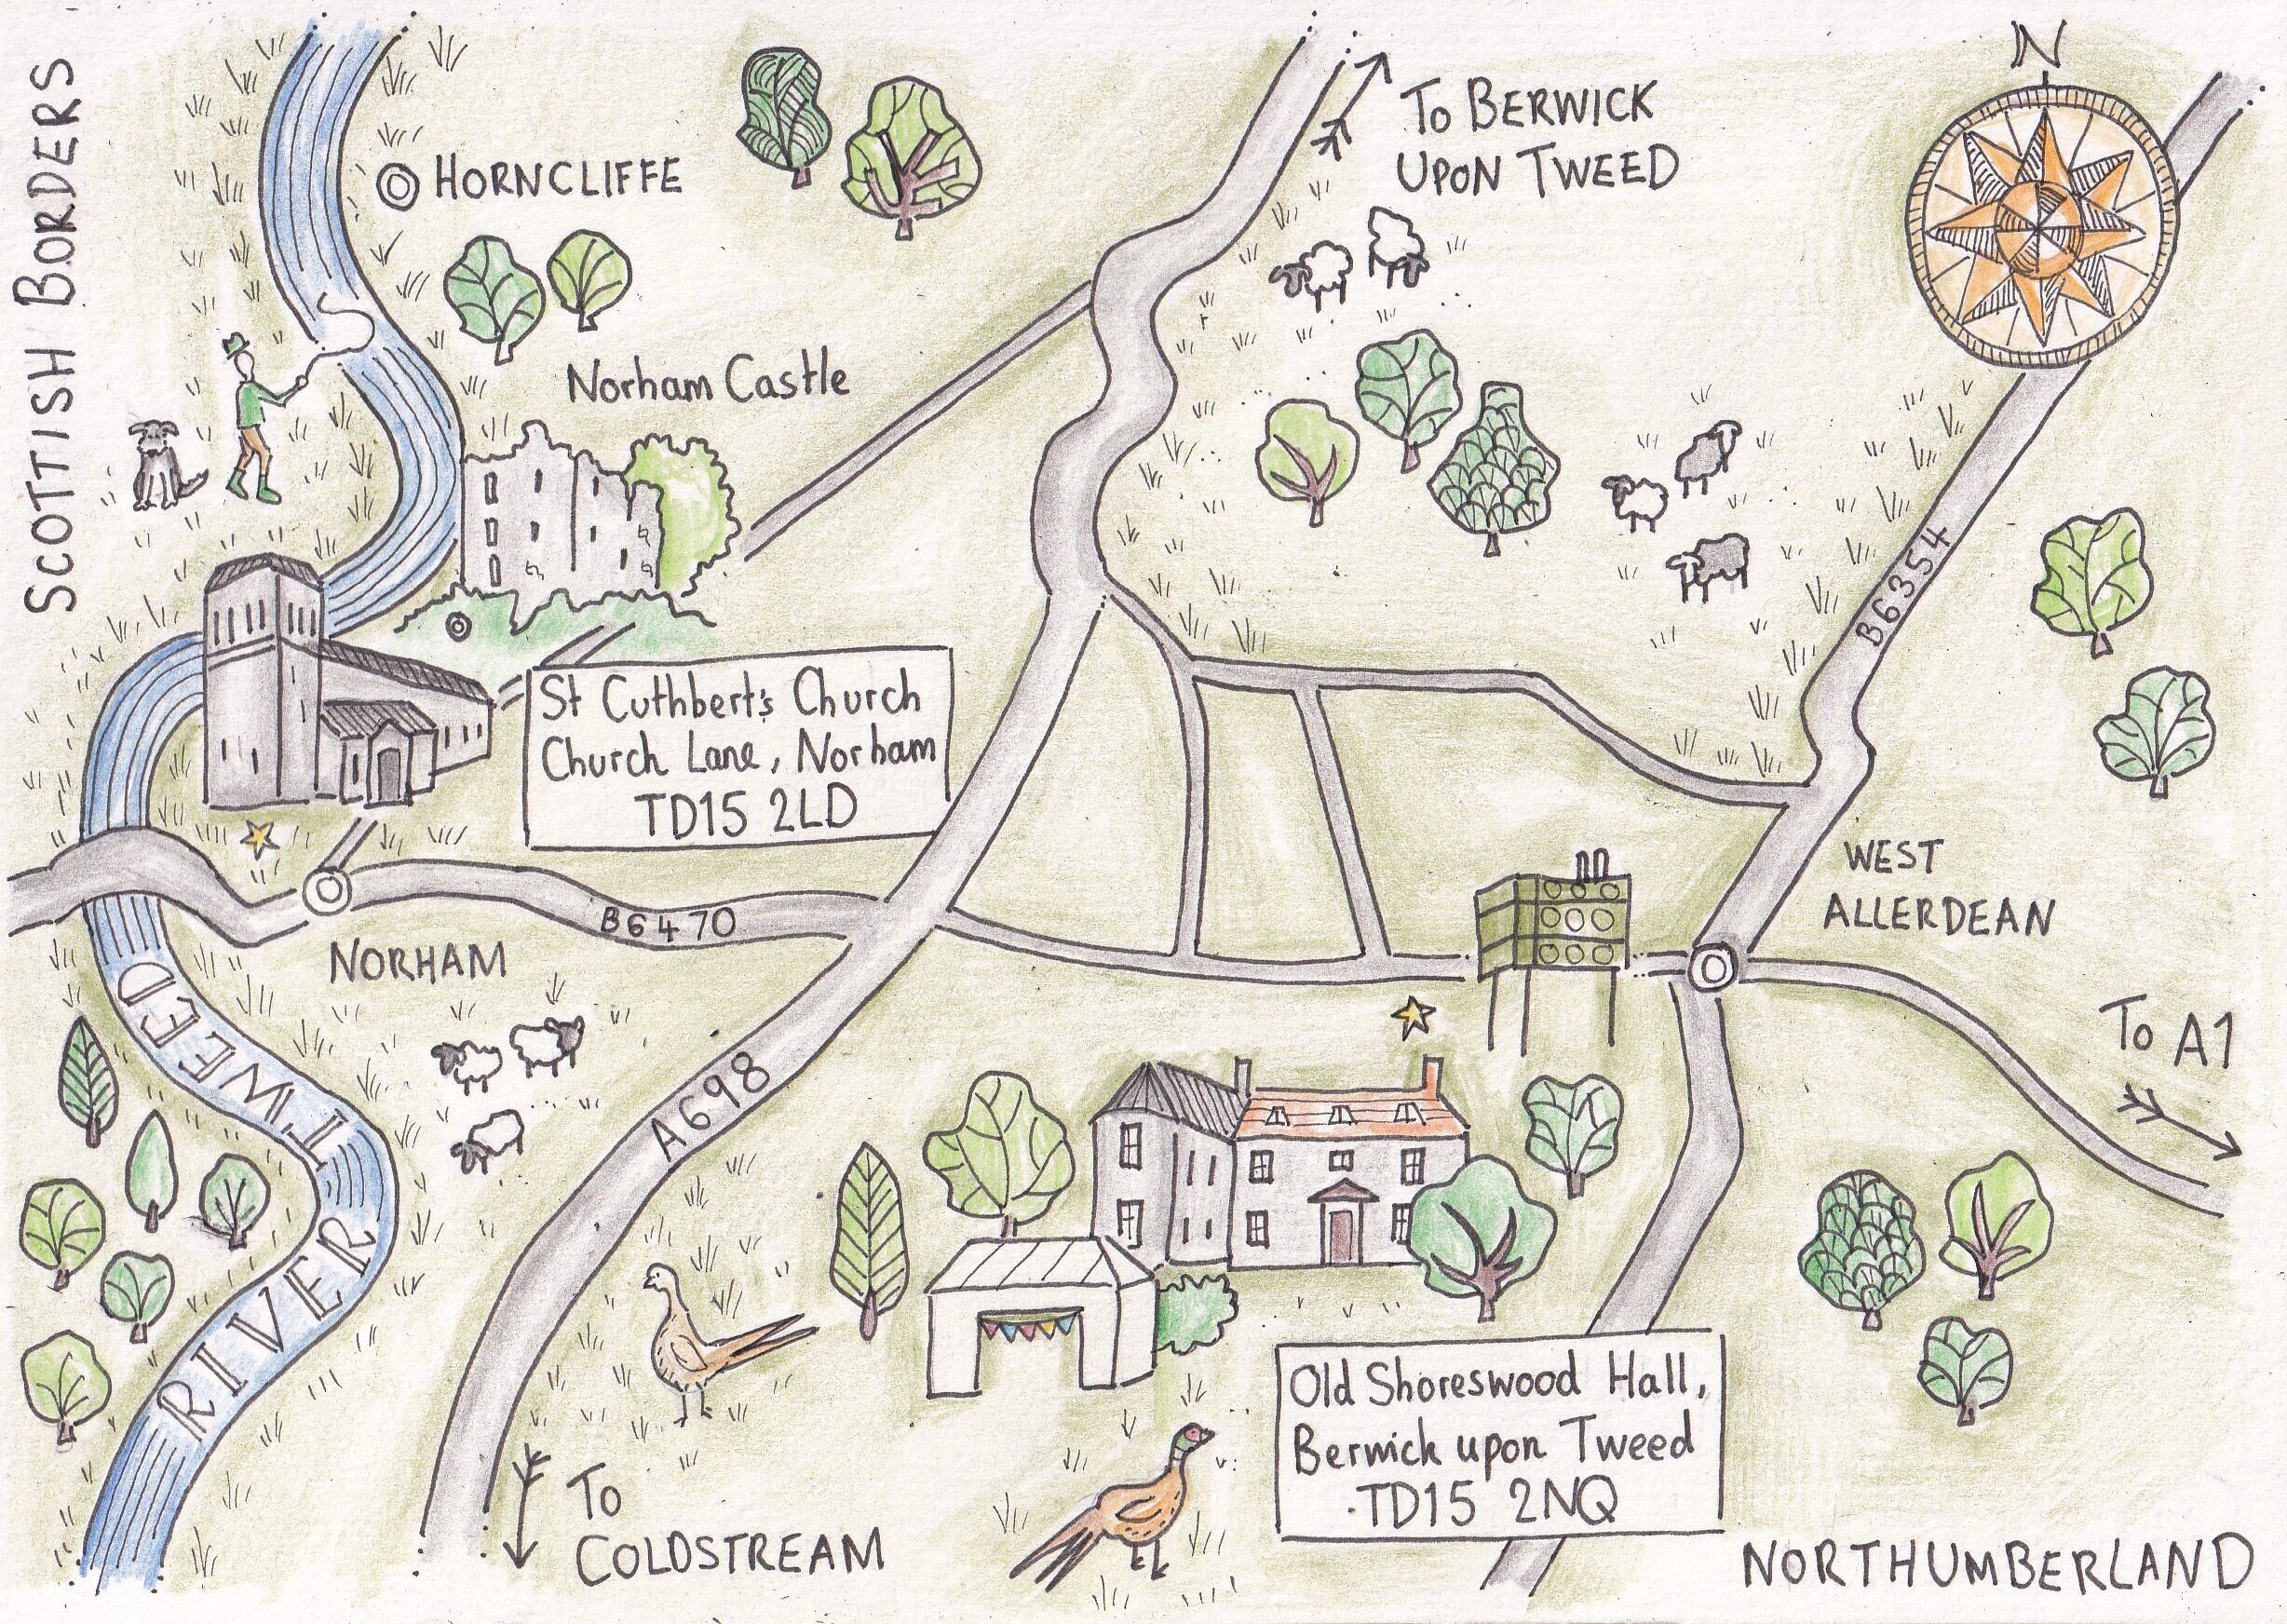 N
SCOTTISH BORDERS
HORNCLIFFE
To BERWICK
UPON TWEED
Norham Castle
B6354
St Cuthbert's Church
Church Lane, Norham
TD15 2LD
WEST
ALLERDEAN
B6470
NORHAM
RIVER TWEED
A698
To A1
Old Shoreswood Hall,
Berwick upon Tweed
TD15 2NQ
To
COLDSTREAM
NORTHUMBERLAND